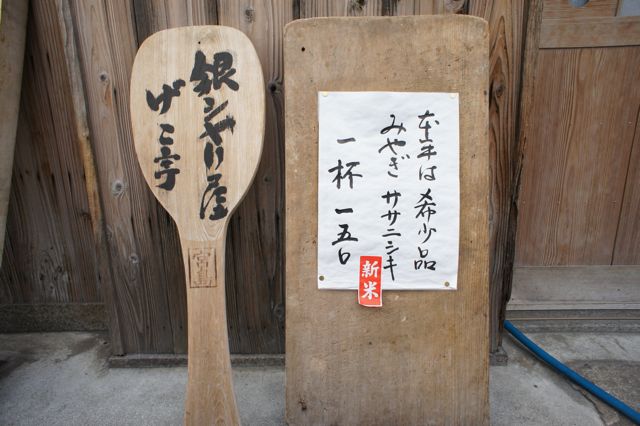 銀シャリ屋
げこ亭
宮島
本年は 希少品
みやぎ ササニシキ
一杯 一五〇
新米